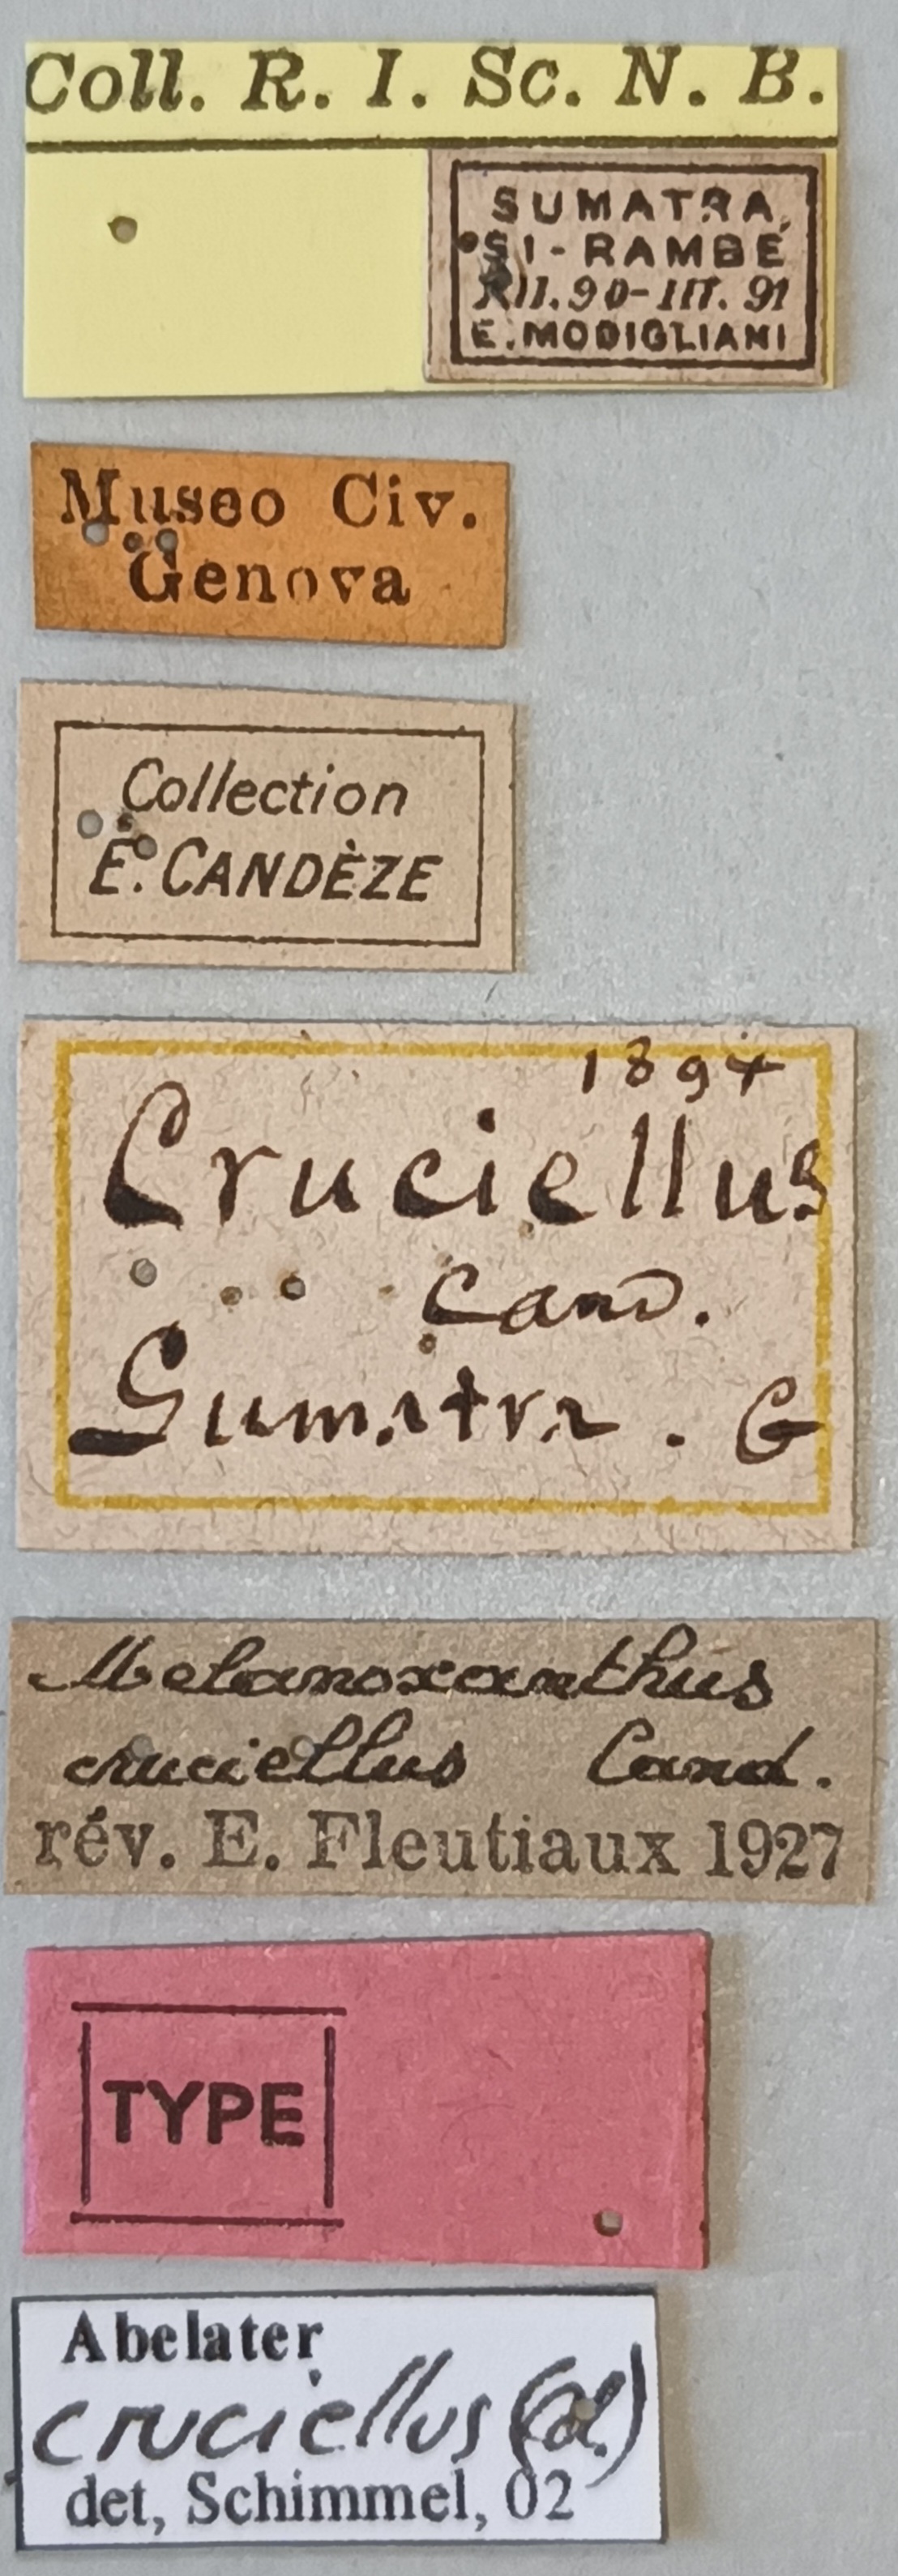 Coll. R. I. Sc. N. B.
SUMATRA
SI-RAMBÉ
XII.90-III.91
E. MODIGLIANI
Museo Civ.
Genova
Collection
E. CANDÈZE
1894
Cruciellus
Cand.
Sumatra. G
Melanoxanthus
cruciellus Cand.
rév. E. Fleutiaux 1927
TYPE
Abelater
cruciellus (Cd.)
det, Schimmel, 02